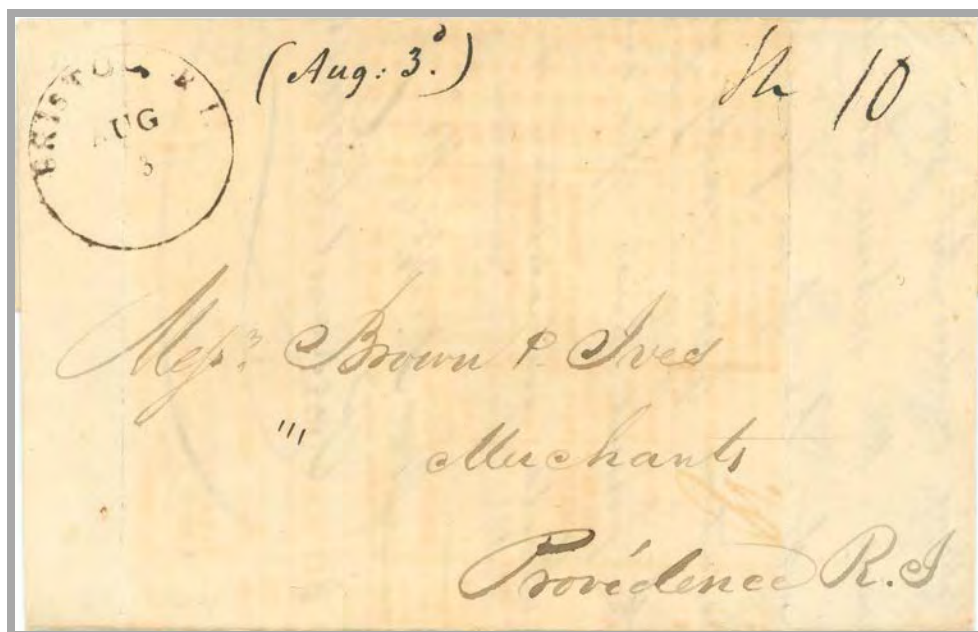 BRISTOL R.I.
AUG
3
(Aug: 3d.)
Sh 10
Messrs. Brown & Ives
"'
Merchants
Providence R.I